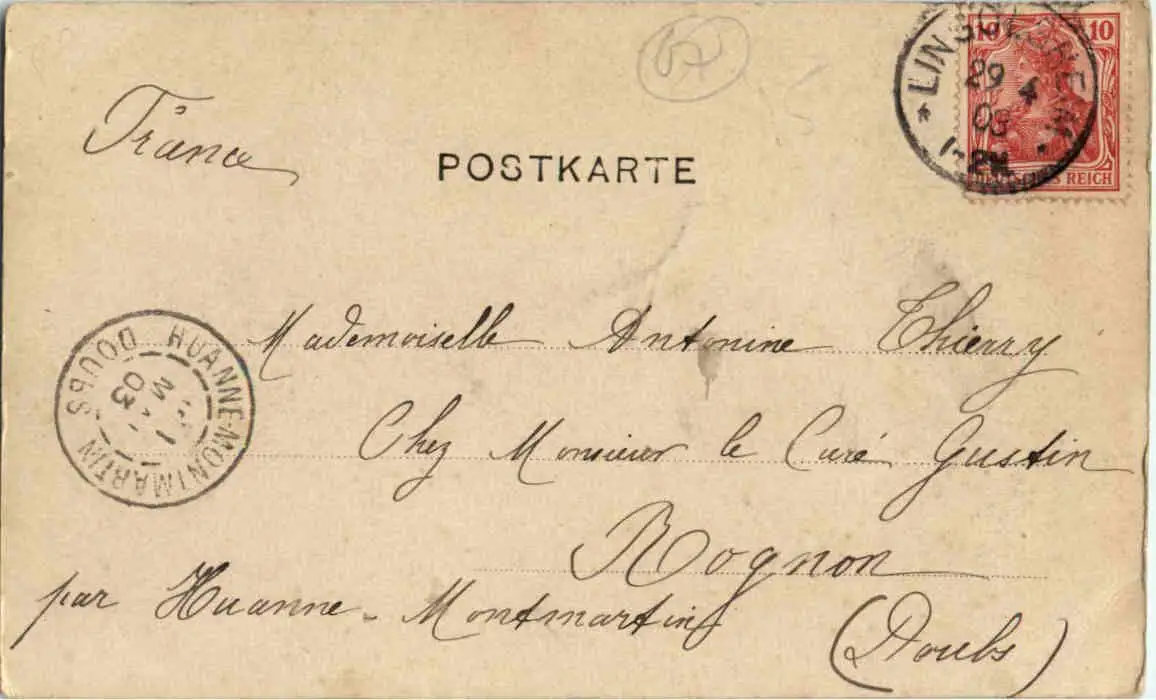 10 10
LINGOLSHEIM
29 4
03
DEUTSCHES REICH
France
POSTKARTE
Mademoiselle Antonine Thierry
Chez Monsieur le Curé Gustin
Rognon
par Huanne-Montmartin
(Doubs)
HUANNE-MONTMARTIN DOUBS
1
03